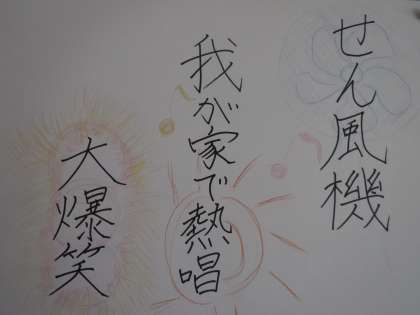 せん風機
我が家で熱唱
大爆笑